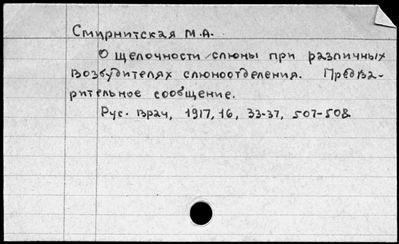 Смирнитская М.А.
О щелочности слюны при различных
возбудителях слюноотделения. Предва-
рительное сообщение.
Рус. врач, 1917, 16, 33-37, 507-508